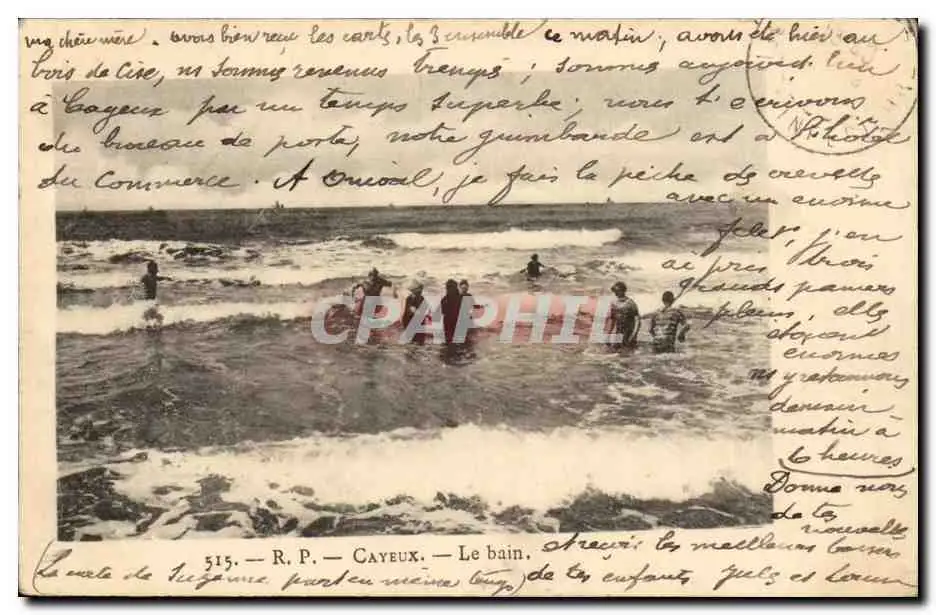 ma chère mère. avons bien reçu les carts, les 3 ensemble ce matin; avons été hier au
bois de Cise, ns sommes revenus trempés; sommes aujourd'hui
à Cayeux par un temps superbe; nous t'écrivons
du bureau de poste, notre guimbarde est à l'hôtel
du Commerce. A Onival, je fais la pêche de crevettes
avec un enorme
filet, j'en
ai pris trois
grands paniers
pleins, elles
étaient
enormes
ns y retournons
demain
matin à
6 heures
Donne nous
de tes
nouvelles
CPAPHIL
515. — R. P. — CAYEUX. — Le bain.
et reçois les meilleurs baisers
(la carte de Suzanne part en même temps) de tes enfants Jules et